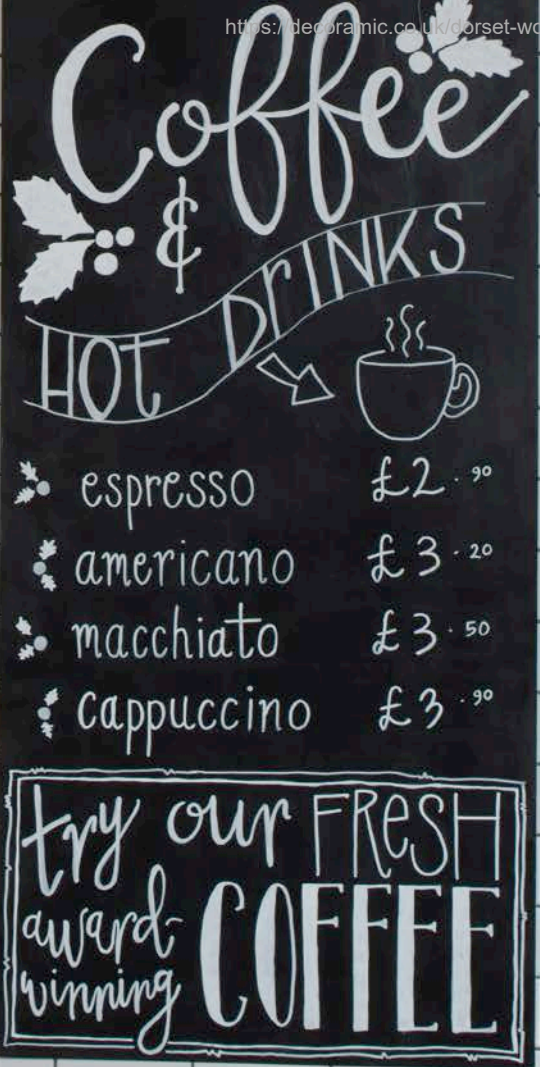 https://decoramic.co.uk/dorset-wo
Coffee
&
HOT DrINKS
espresso £2.90
americano £3.20
macchiato £3.50
cappuccino £3.90
try our FReSH
award-
winning COFFEE